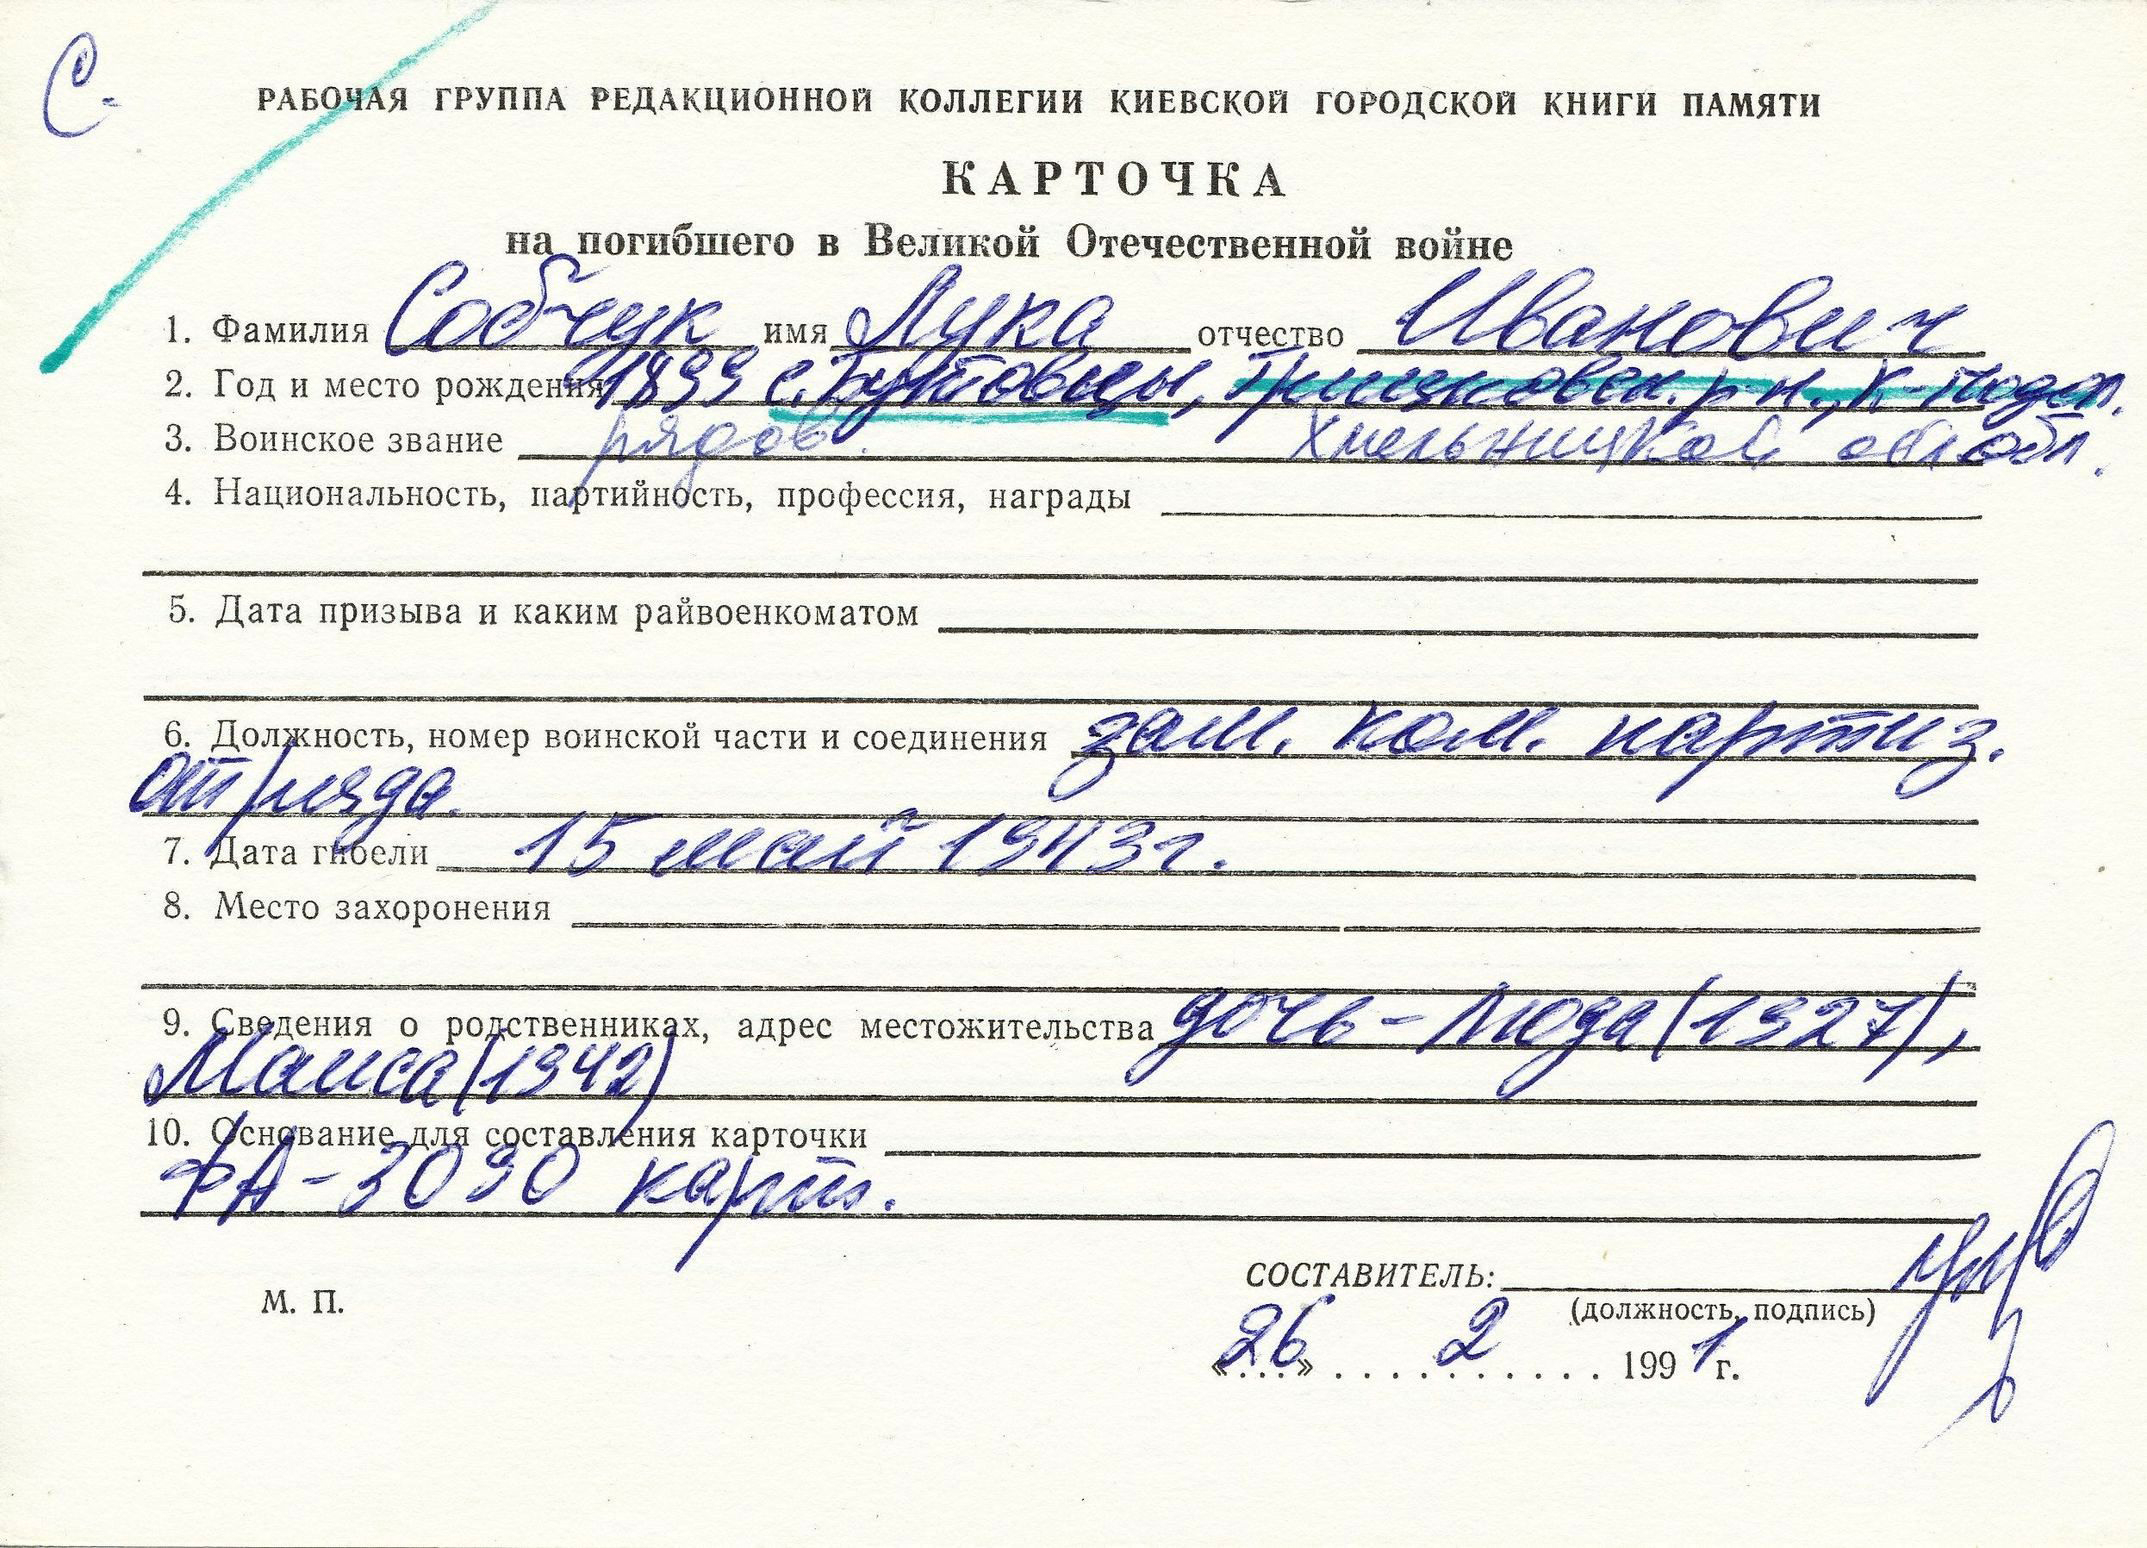 С.
РАБОЧАЯ ГРУППА РЕДАКЦИОННОЙ КОЛЛЕГИИ КИЕВСКОЙ ГОРОДСКОЙ КНИГИ ПАМЯТИ
КАРТОЧКА
на погибшего в Великой Отечественной войне
1. Фамилия Собчук имя Лука отчество Иванович
2. Год и место рождения 1899 с. Бутовцы, р-н., К-Подол.
3. Воинское звание рядов. Хмельницкой обл.
4. Национальность, партийность, профессия, награды
5. Дата призыва и каким райвоенкоматом
6. Должность, номер воинской части и соединения зам. ком. партиз.
отряда.
7. Дата гибели 15 май 1943 г.
8. Место захоронения
9. Сведения о родственниках, адрес местожительства дочь - Люда (1927),
Маиса (1942)
10. Основание для составления карточки
ФА - 3090 карт.
СОСТАВИТЕЛЬ:
М. П.
(должность, подпись)
«26» 2 1991 г.